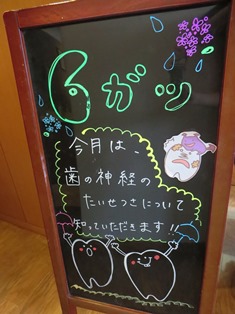 6がツ
今月は、
歯の神経の
たいせつさについて
知っていただきます!!